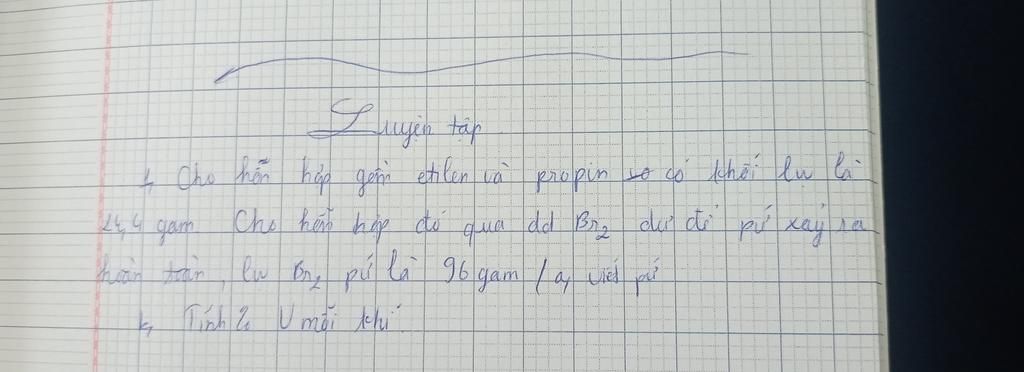 Luyện tập
1, Cho hỗn hợp gồm etilen và propin có khối lư là
gam. Cho hỗn hợp đó qua dd Br2 dư để pứ xảy ra
hoàn toàn, lư Br2 pứ là 96 gam / a, viết pứ
b, Tính % V mỗi khí.